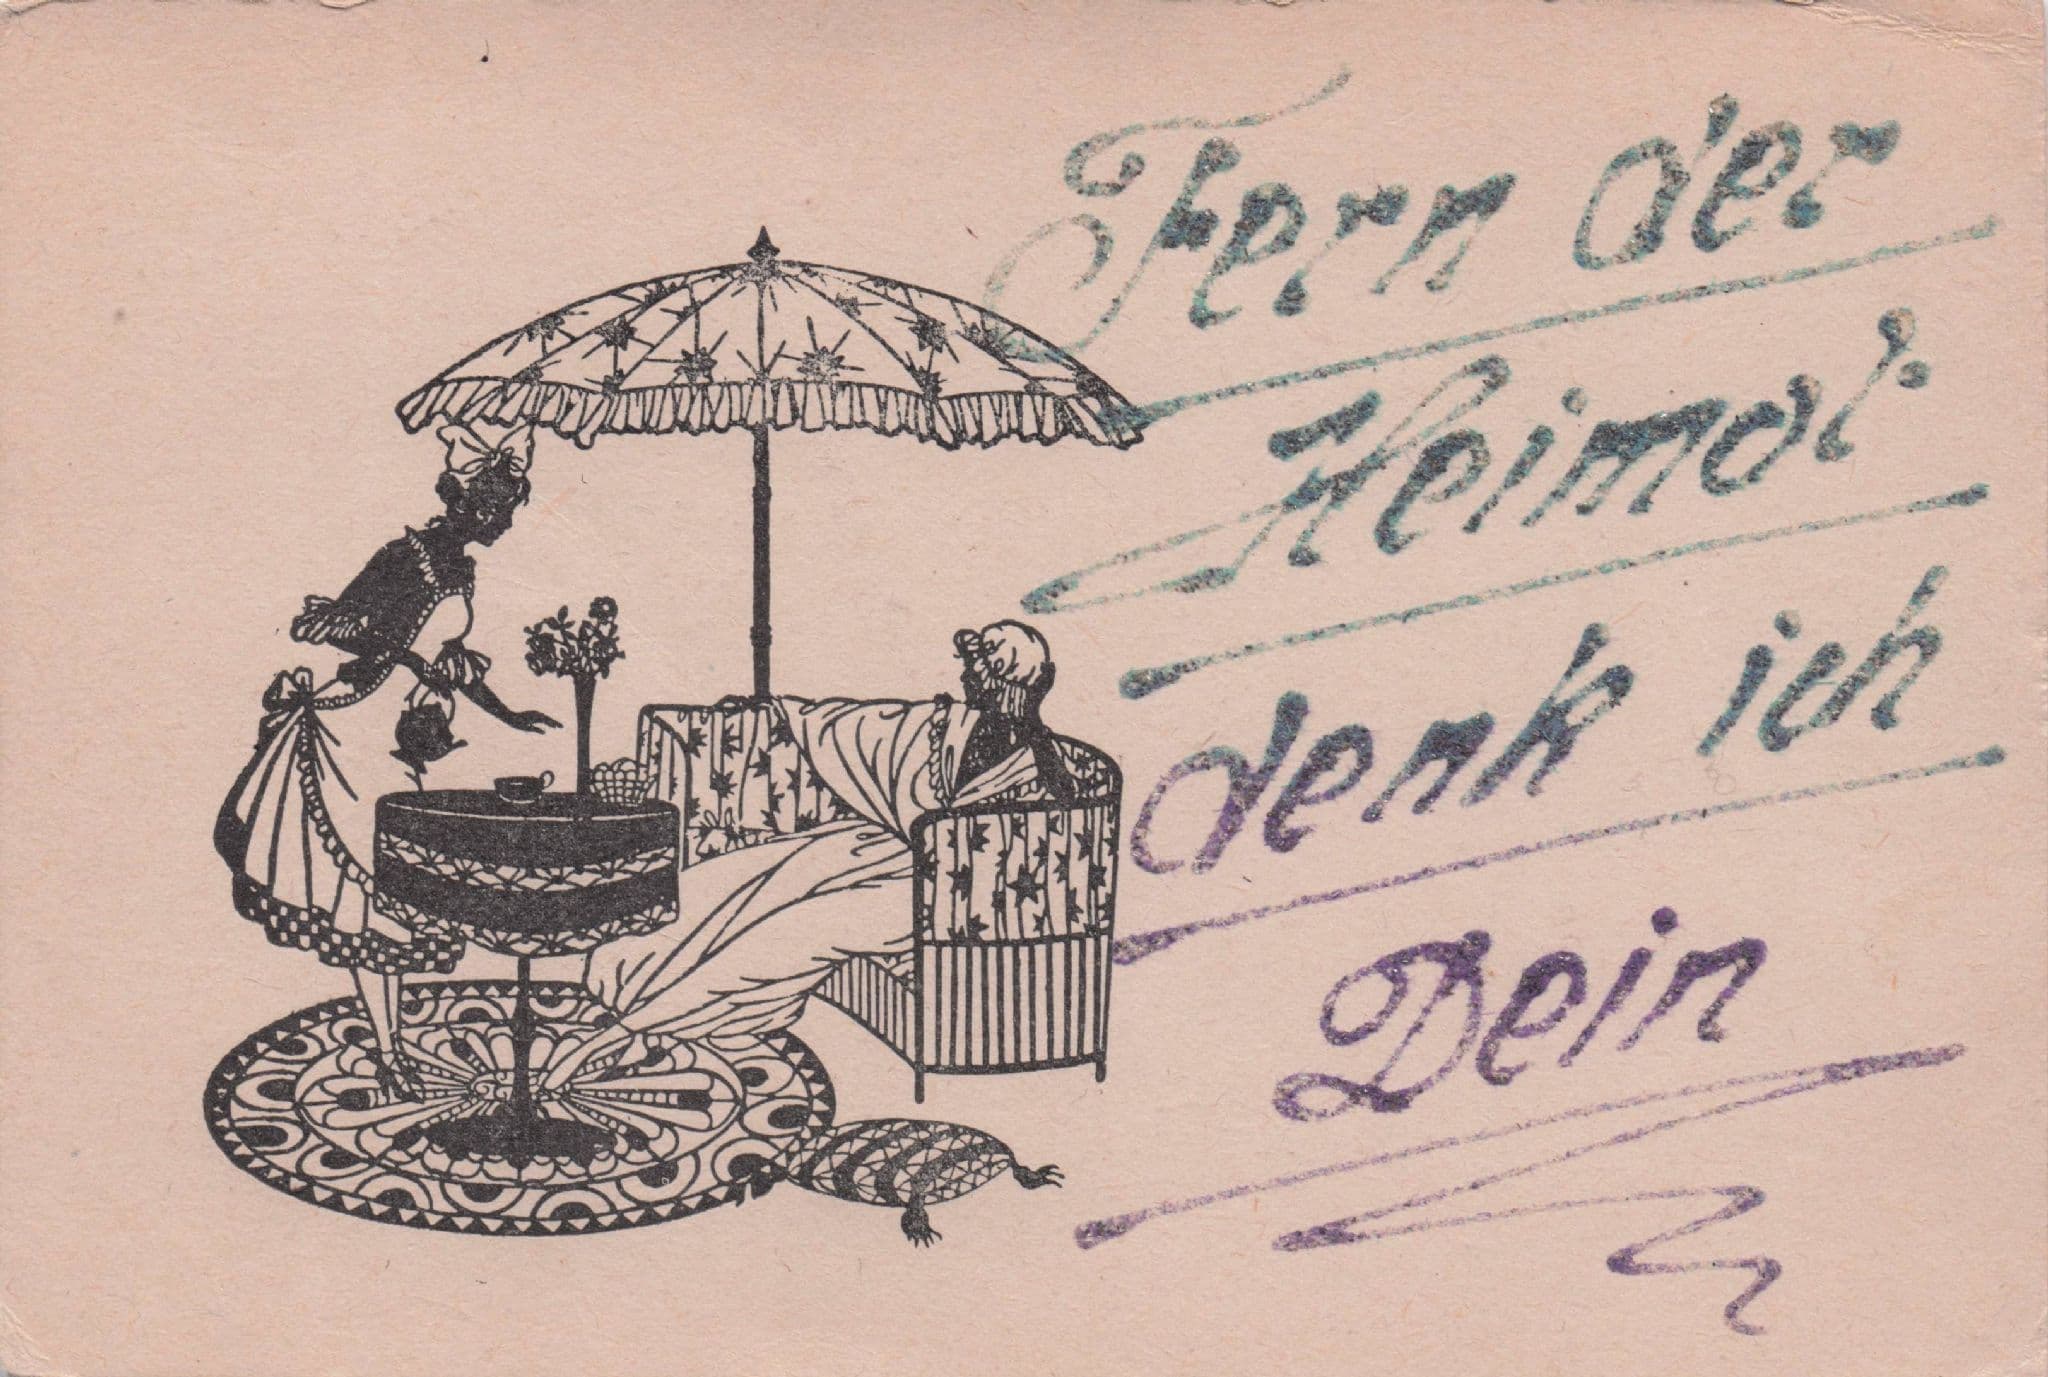 Fern der
Heimat
denk ich
Dein